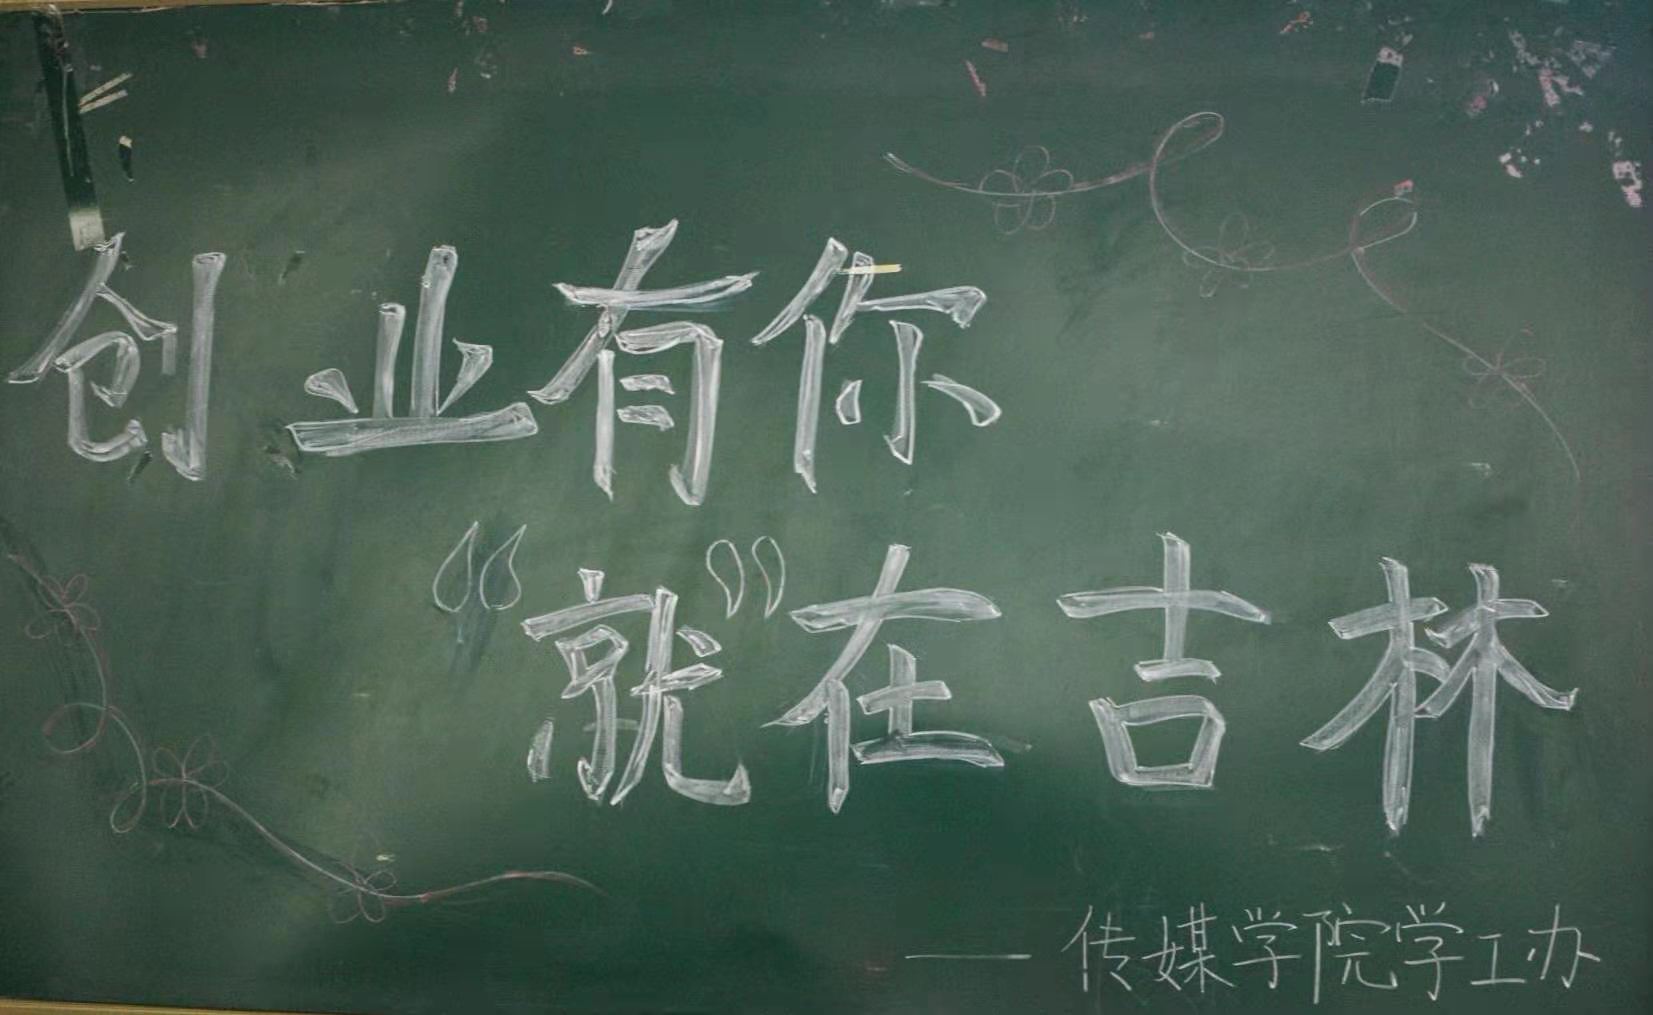 创业有你
“就”在吉林
——传媒学院学工办